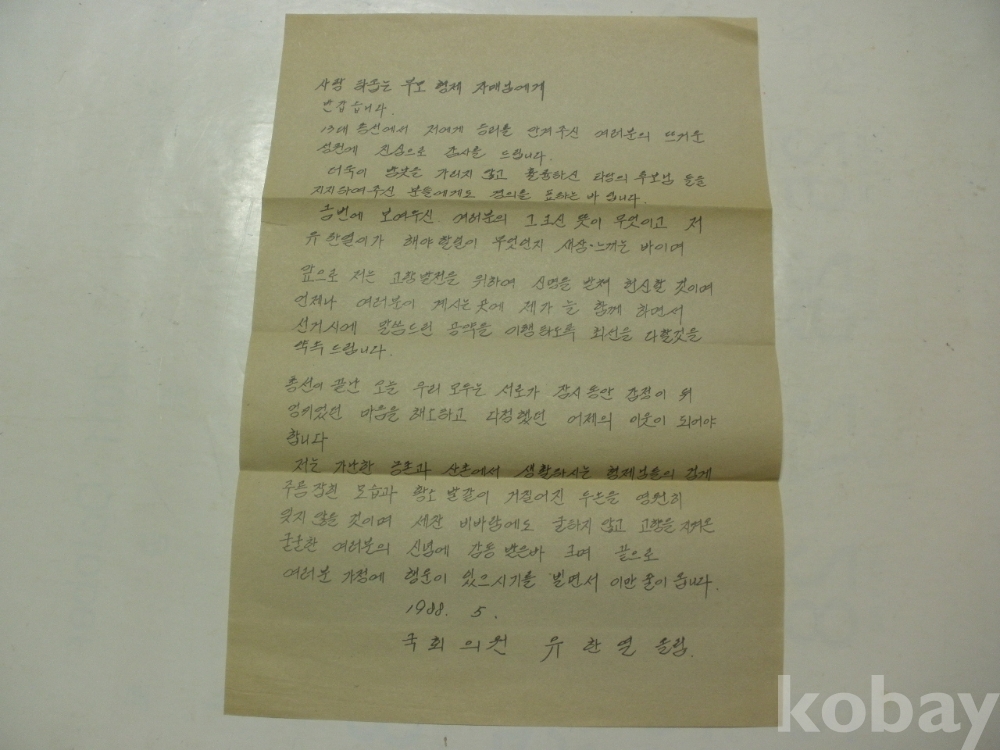 사랑 하옵는 부모 형제 자매님에게
반갑습니다.
13대 총선에서 저에게 승리를 안겨주신 여러분의 뜨거운
성원에 진심으로 감사를 드립니다.
더욱이 밤낮을 가리지 않고 훌륭하신 타당의 후보님 들을
지지하여주신 분들에게도 경의를 표하는 바 입니다.
금번에 보여주신 여러분의 그 크신 뜻이 무엇이고 저
유한열이가 해야할일이 무엇인지 새삼 느끼는 바이며
앞으로 저는 고향발전을 위하여 신명을 받쳐 헌신할 것이며
언제나 여러분이 계시는 곳에 제가 늘 함께 하면서
선거시에 말씀드린 공약을 이행하도록 최선을 다할것을
약속 드립니다.
총선이 끝난 오늘 우리 모두는 서로가 잠시동안 감정이 뒤
엉이었던 마음을 해소하고 다정했던 어제의 이웃이 되어야
합니다
저는 가난한 농촌과 산촌에서 생활하시는 형제님들의 검게
주름잡힌 모습과 황소 발같이 거칠어진 두손을 영원히
잊지 않을 것이며 세찬 비바람에도 굴하지 않고 고향을 지켜온
굳굳한 여러분의 신념에 감동 받은바 크며 끝으로
여러분 가정에 행운이 있으시기를 빌면서 이만 줄이 옵니다.
1988. 5.
국회의원 유한열 올림.
kobay